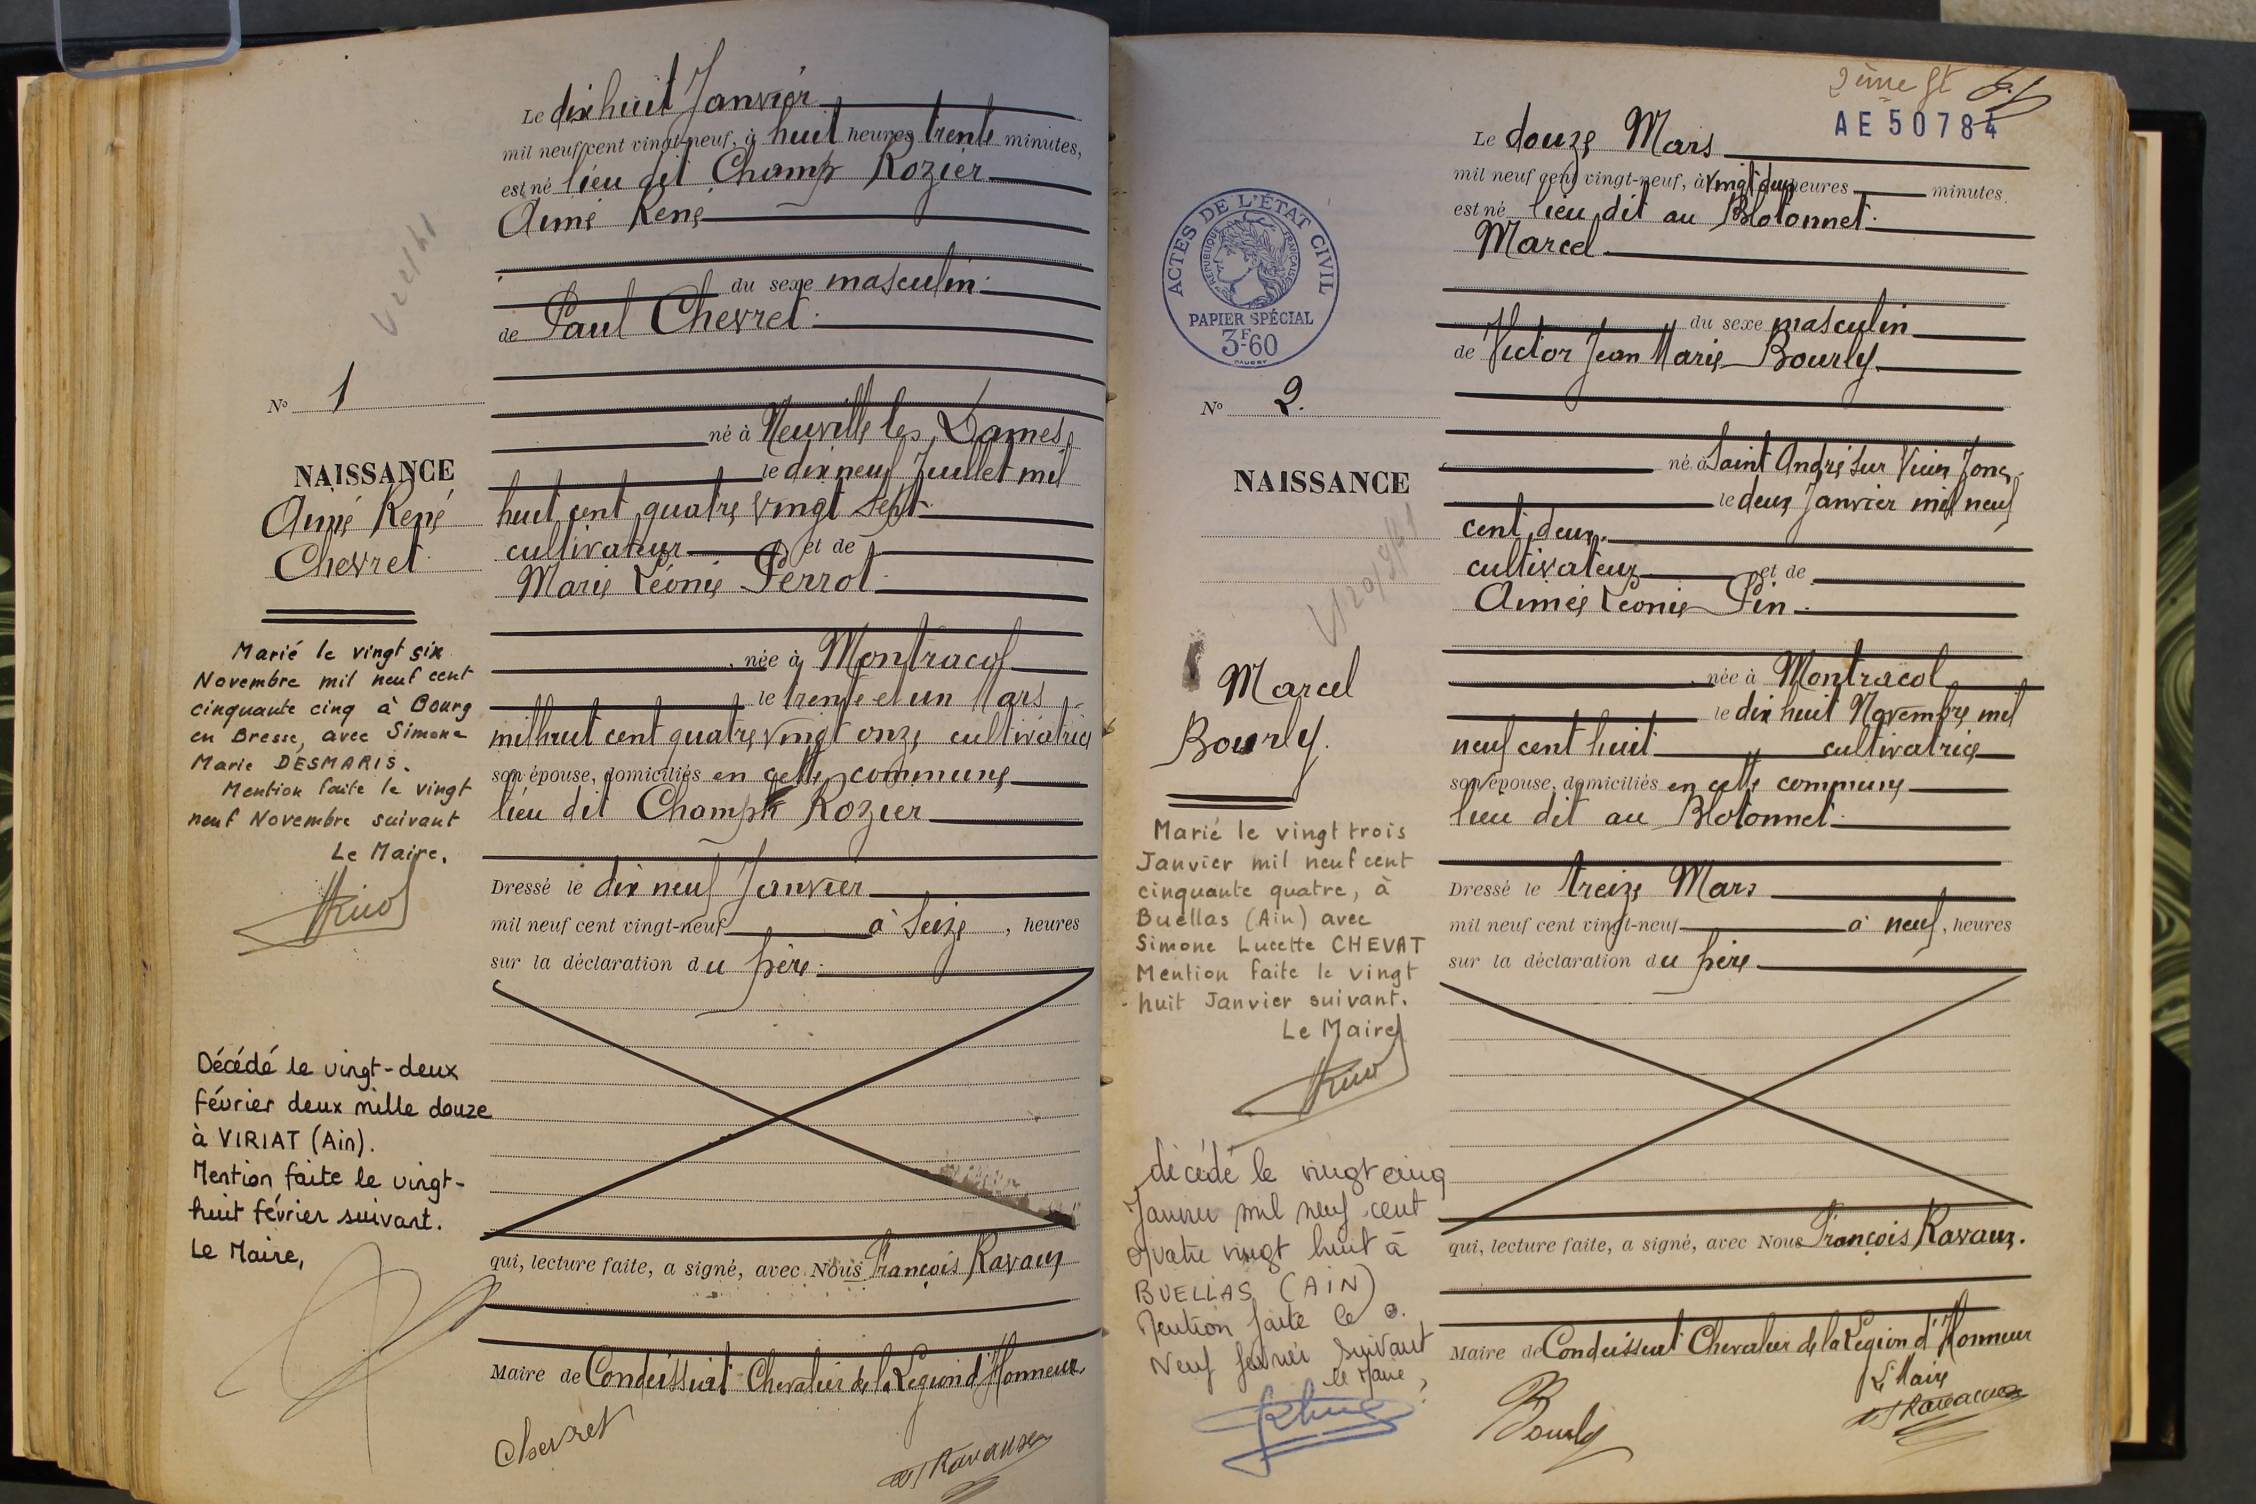 Le dix huit Janvier
mil neuf cent vingt-neuf, à huit heures trente minutes,
est né lieu dit Champ Rozier
Aimé René
du sexe masculin.
de Paul Chevret.
né à Neuville les Dames,
le dix neuf Juillet mil
huit cent quatre vingt sept.
cultivateur et de
Marie Léonie Perrot.
née à Montracol
le trente et un Mars
mil huit cent quatre vingt onze cultivatrice
son épouse, domiciliés en cette commune
lieu dit Champ Rozier
Dressé le dix neuf Janvier
mil neuf cent vingt-neuf à Seize, heures
sur la déclaration du père.
qui, lecture faite, a signé, avec Nous François Ravaux
Maire de Condeissiat Chevalier de la Légion d'Honneur.
Chevret
Ravaux
No 1
NAISSANCE
Aimé René
Chevret.
Marié le vingt six
Novembre mil neuf cent
cinquante cinq à Bourg
en Bresse, avec Simone
Marie DESMARIS.
Mention faite le vingt
neuf Novembre suivant
Le Maire,
Décédé le vingt-deux
février deux mille douze
à VIRIAT (Ain).
Mention faite le vingt-
huit février suivant.
Le Maire,
2ème
AE 50784
Le douze Mars
mil neuf cent vingt-neuf, à vingt deux heures minutes.
est né lieu dit au Blotonnet.
Marcel
du sexe masculin
de Victor Jean Marie Bourly.
né à Saint André sur Vieux Jonc,
le deux Janvier mil neuf
cent deux.
cultivateur et de
Aimée Léonie Pin.
née à Montracol
le dix huit Novembre mil
neuf cent huit cultivatrice
son épouse, domiciliés en cette commune
lieu dit au Blotonnet.
Dressé le treize Mars
mil neuf cent vingt-neuf à neuf, heures
sur la déclaration du père
qui, lecture faite, a signé, avec Nous François Ravaux.
Maire de Condeissiat Chevalier de la Légion d'Honneur
Le Maire
Bourly
Ravaux
ACTES DE L'ÉTAT CIVIL
RÉPUBLIQUE FRANÇAISE
PAPIER SPÉCIAL
3F60
No 2.
NAISSANCE
Marcel
Bourly.
Marié le vingt trois
Janvier mil neuf cent
cinquante quatre, à
Buellas (Ain) avec
Simone Lucette CHEVAT
Mention faite le vingt
huit Janvier suivant.
Le Maire
décédé le vingt cinq
Janvier mil neuf cent
quatre vingt huit à
BUELLAS (AIN)
Mention faite le
Neuf février suivant
le Maire,